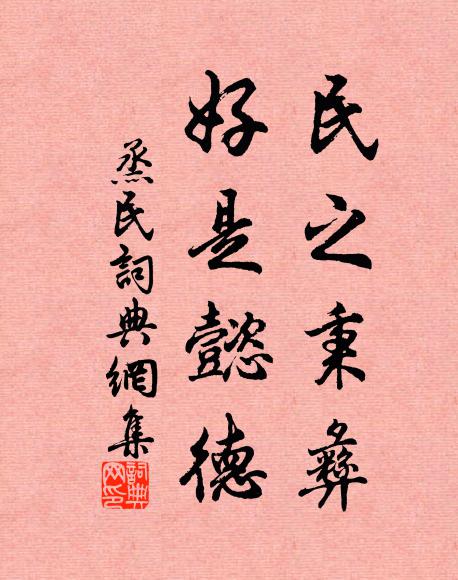 民之秉彝
好是懿德
烝民詞典網集
詞典網印